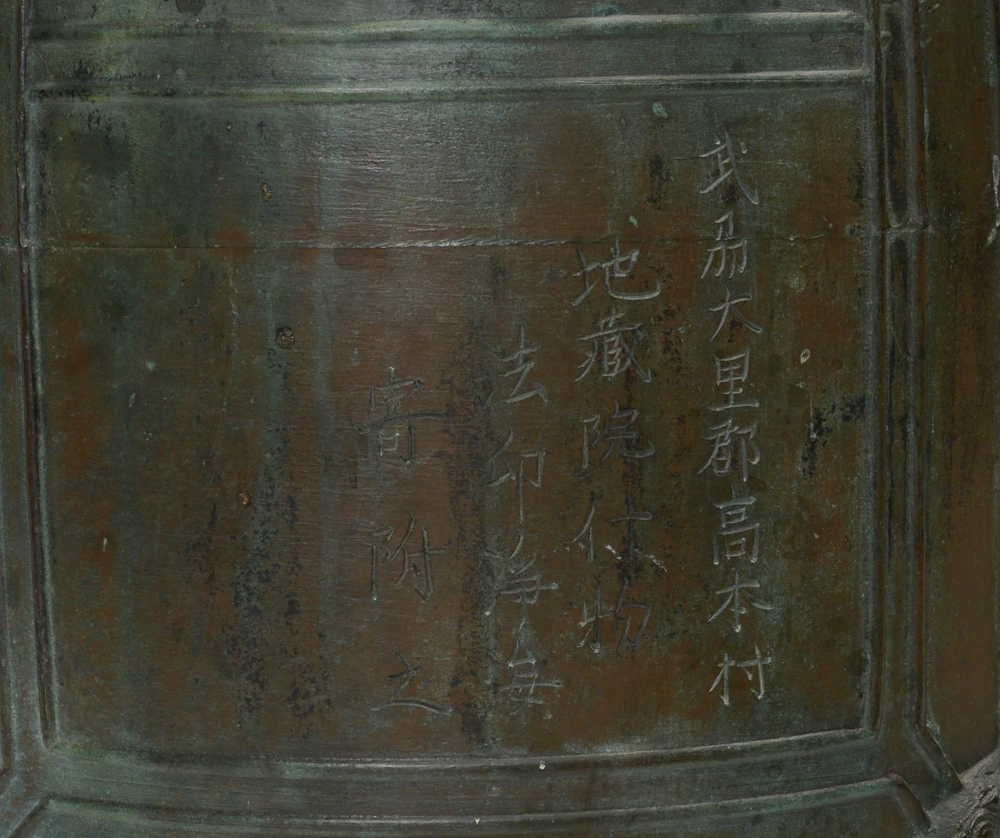 武刕大里郡高本村
地藏院什物
法印净海
寄附之